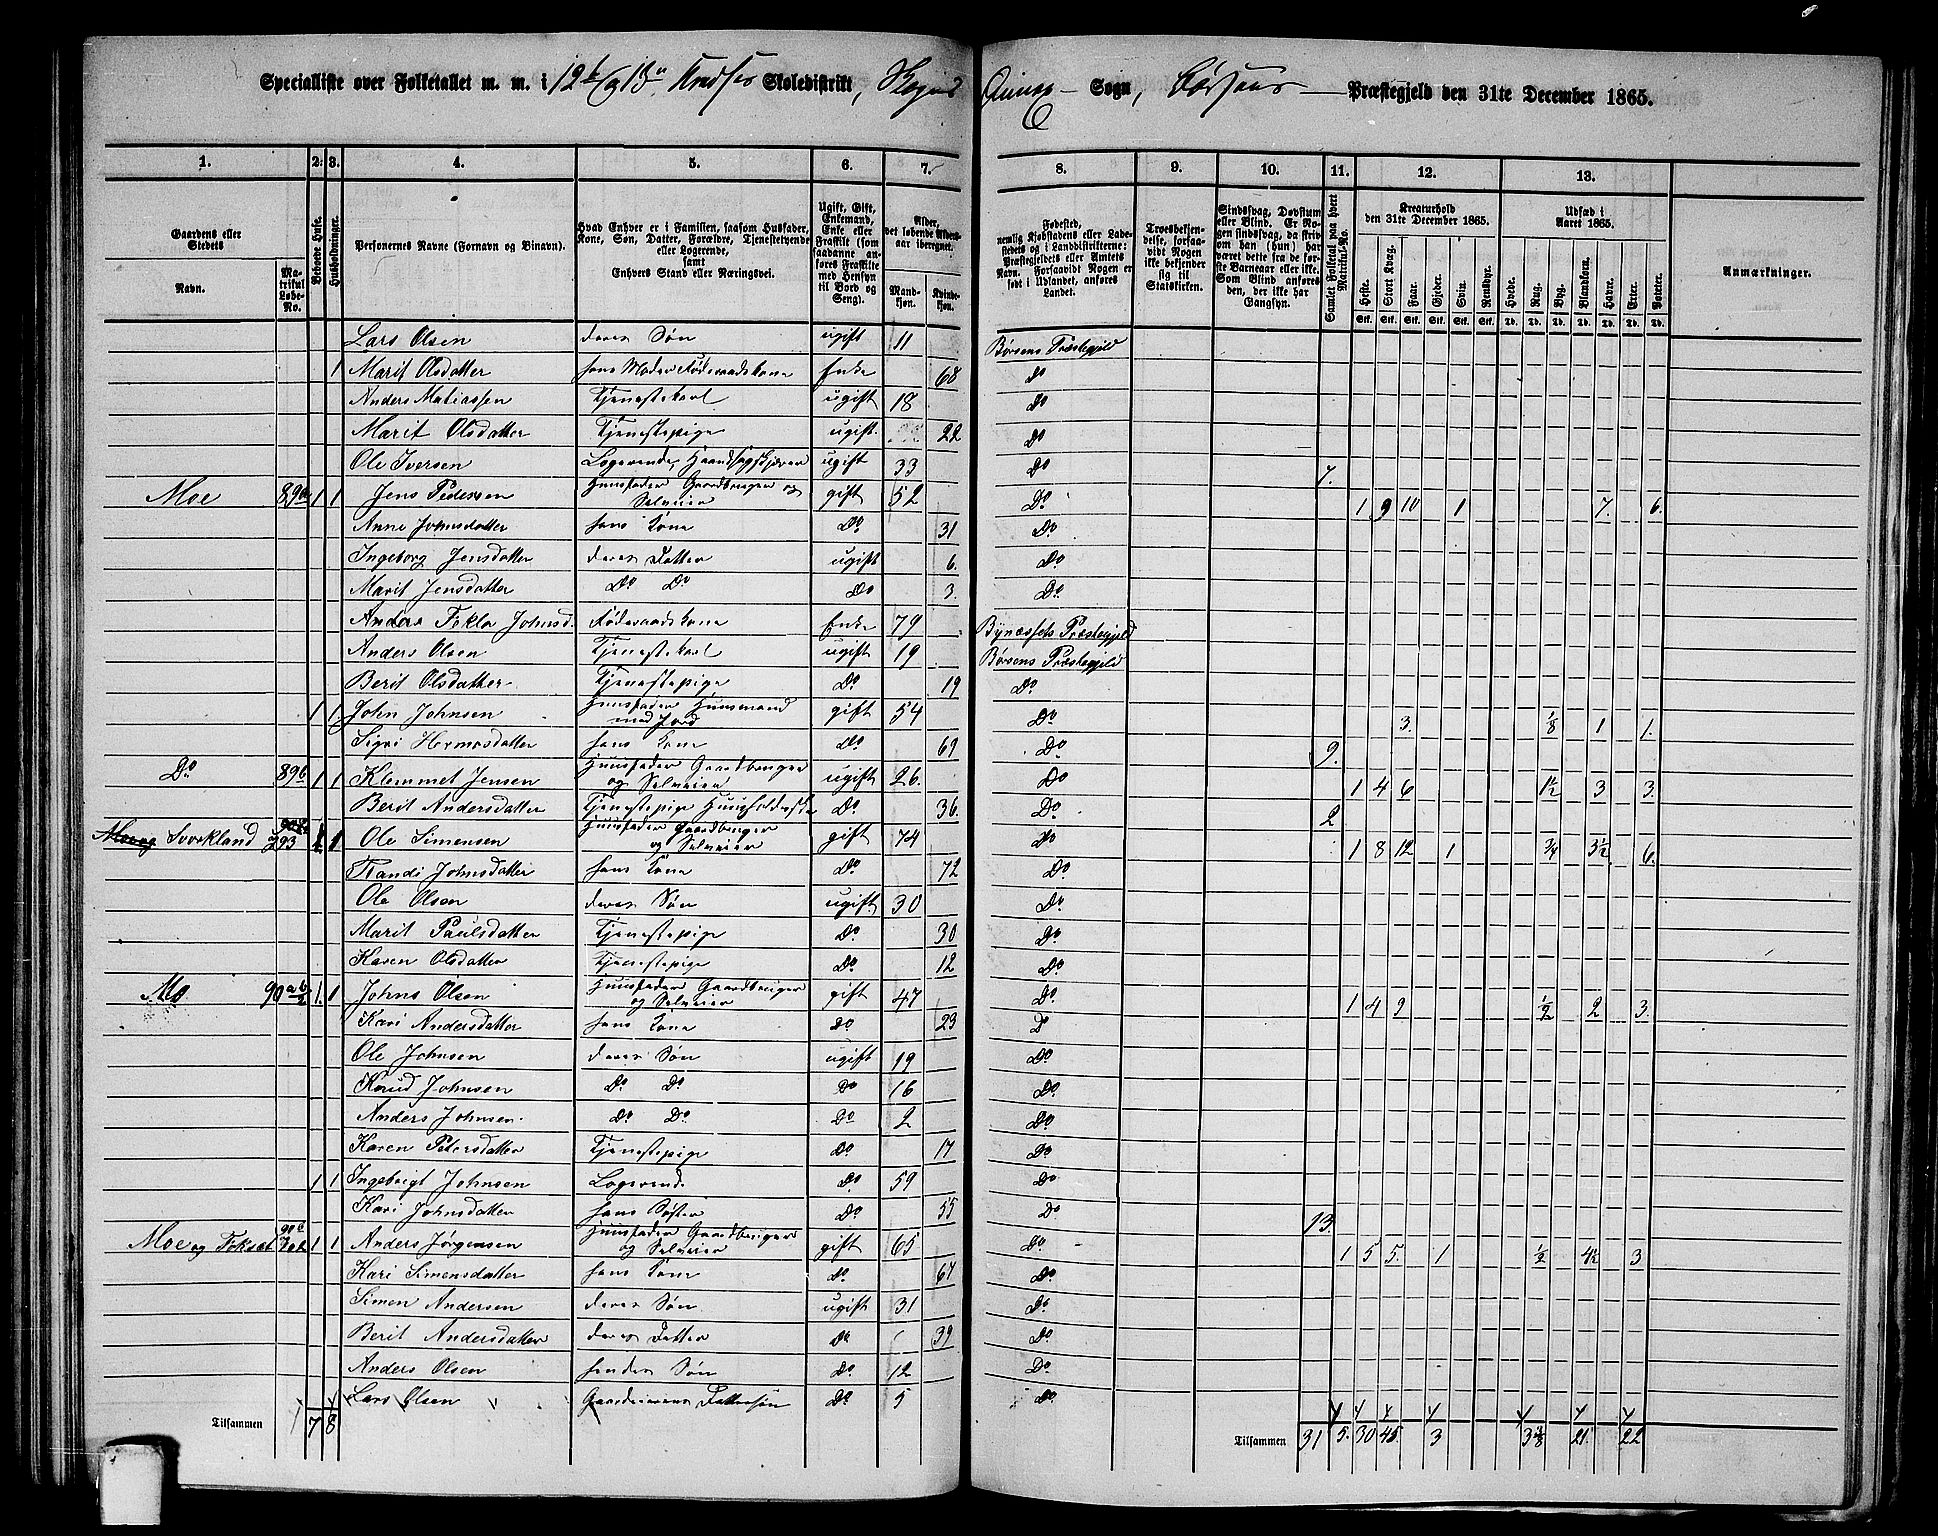 Specialliste over Folketallet m. m. i 12 b og 13 a Skoledistrikt, Sogn, Børsens Præstegjeld den 31te December 1865.
1. 2. 3. 4. 5. 6. 7. 8. 9. 10. 11. 12. 13.
Gaardens eller Stedets
Navn.
Matrikul Løbe-No.
Beboede Huse.
Husholdninger.
Personernes Navne (Fornavn og Binavn).
Hvad Enhver er i Familien, saasom Husfader, Kone, Søn, Datter, Forældre, Tjenestetyende eller Logerende, samt Enhvers Stand eller Næringsvei.
Ugift, Gift, Enkemand, Enke eller Fraskilt (som saadanne anføres Fraskilte med Hensyn til Bord og Seng).
Alder, det løbende Aldersaar iberegnet.
Mandkjøn. Kvindekjøn.
Fødested, nemlig Kjøbstadens eller Ladestedets og i Landdistrikterne: Præstegjeldets eller Amtets Navn. Forsaavidt Nogen er født i Udlandet, anføres Landet.
Troesbekjendelse, forsaavidt Nogen ikke bekjender sig til Statskirken.
Sindssvag, Døvstum eller Blind. Er Nogen sindssvag, da skrives om han (hun) har været dette fra de første Barneaar eller ikke. Som Blind anføres den, der ikke har Gangsyn.
Samlet Folketal paa hvert Matrikul-No.
Kreaturhold den 31te December 1865.
Heste. Stort Kvæg. Faar. Gjeder. Svin. Rensdyr.
Udsæd i Aaret 1865.
Hvede. Rug. Byg. Blandkorn. Havre. Erter. Poteter.
Anmærkninger.
Lars Olsen deres Søn ugift 11 Børsens Præstegjeld
1 Marit Olsdatter hans Moder Føderaadskone Enke 68 Do
Anders Matiassen Tjenestekarl ugift 18 Do
Marit Olsdatter Tjenestepige ugift 22 Do
Ole Iversen Logerende ugift 33 Do 7.
Moe 89a 1 1 Jens Pedersen Huusfader Gaardbruger og Selveier gift 52 Do 1 9 10 1 7. 6.
Anne Johnsdatter hans Kone Do 31 Do
Ingeborg Jensdatter deres Datter ugift 6. Do
Marit Jensdatter Do Do Do 3. Do
Anders Johnsd. Føderaadskone Enke 79 Bynæssets Præstegjeld
Anders Olsen Tjenestekarl ugift 19 Børsens Præstegjeld
Berit Olsdatter Tjenestepige Do 19 Do
1 1 John Johnsen Huusfader Huusmand med Jord gift 54 Do 3. 1/8 1 1.
Sigri Hermosdatter hans Kone Do 69 Do 9.
Do 89b 1 1 Klemmet Jensen Huusfader Gaardbruger og Selveier ugift 26. Do 1 4 6 1½ 3 3.
Berit Andersdatter Tjenestepige Do 36. Do 2
Svorkland 93 1 1 Ole Simensen Huusfader Gaardbruger og Selveier gift 74 Do 1 8 12 1 ¾ 3½ 6.
Randi Johnsdatter hans Kone Do 72 Do
Ole Olsen deres Søn ugift 30 Do
Marit Paulsdatter Tjenestepige Do 30 Do
Karen Olsdatter Tjenestepige Do 12 Do
Mo 90 a b 1 1 Johns Olsen Huusfader Gaardbruger og Selveier gift 47 Do 1 4 9 ½ 2 3.
Kari Andersdatter hans Kone Do 23 Do
Ole Johnsen deres Søn ugift 19 Do
Knud Johnsen Do Do Do 16 Do
Anders Johnsen. Do Do Do 2 Do
Karen Petersdatter Tjenestepige Do 17 Do
1 1 Ingebrigt Johnsen Logerend. Do 59 Do
Kari Johnsdatter hans Søster Do 55 Do 13.
Moe og Foksæt 1 1 Anders Jørgensen Huusfader Gaardbruger og Selveier gift 65 Do 1 5 5. 1 ½ 4½ 3
Kari Simensdatter hans Kone Do 67 Do
Simen Andersen deres Søn ugift 31 Do
Berit Andersdatter deres Datter Do 39 Do
Anders Olsen hendes Søn Do 12 Do
Lars Olsen Gaardeierens Dattersøn Do 5 Do
Tilsammen 7 8
Tilsammen 31 5. 30 45. 3 3 3/8 21. 22